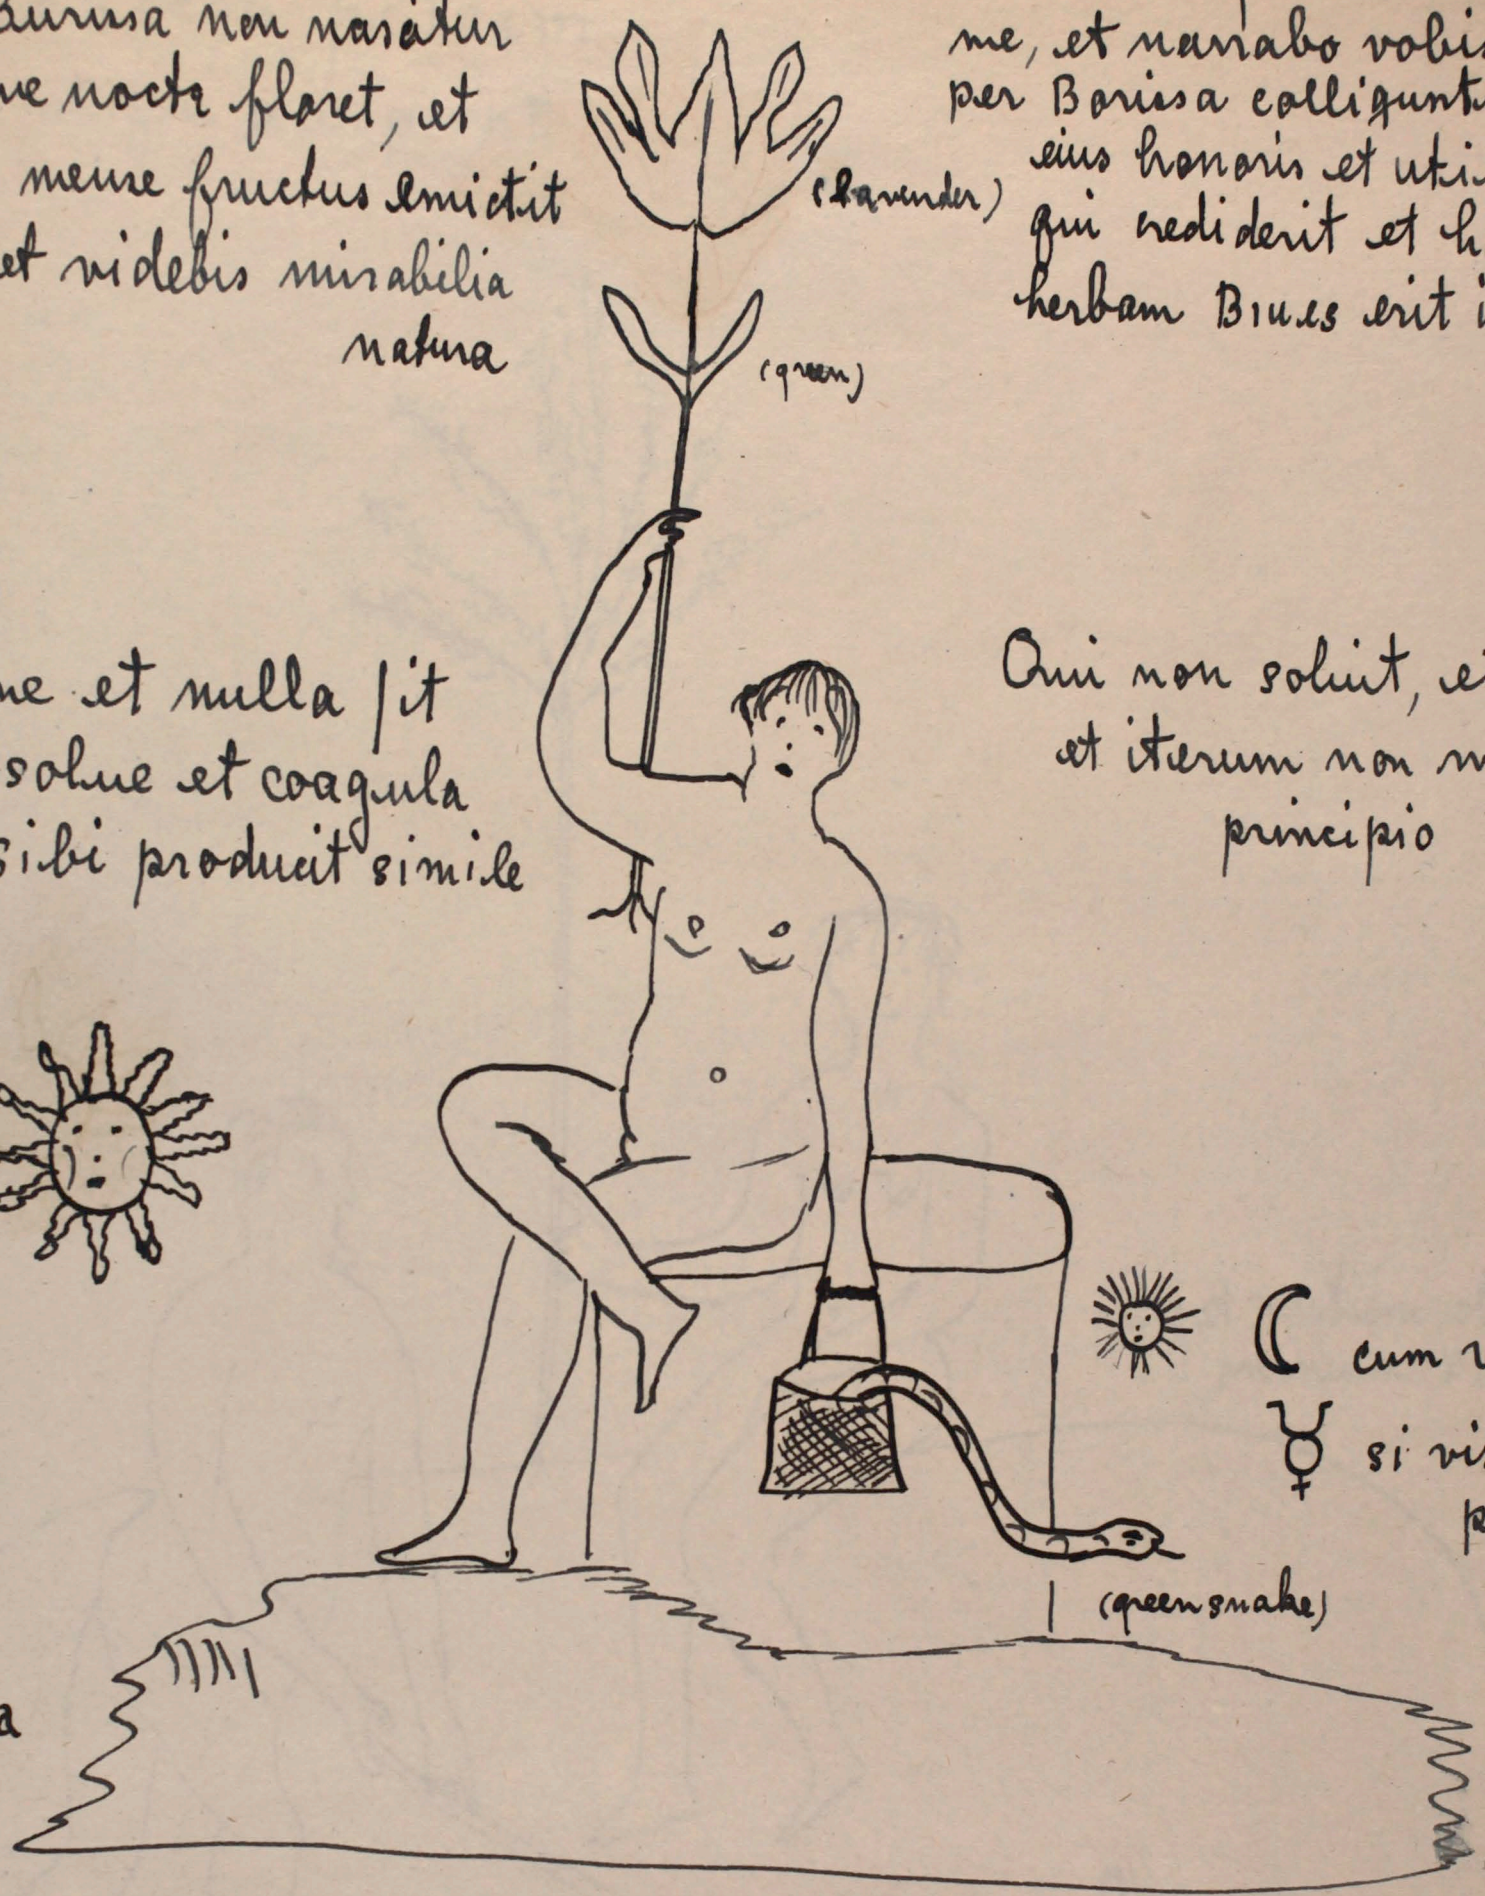 non nasatur
nocte floret, et
mense fructus emictit
et videbis mirabilia
natura
me, et narrabo vobis
per Borissa colligunt
eius honoris et uti
qui crediderit et h
herbam Brues erit i
(lavender)
(green)
ne et nulla fit
solue et coagula
sibi producit simile
Qui non soluit, et
et iterum non
principio
cum
si vis
p
(green snake)
a